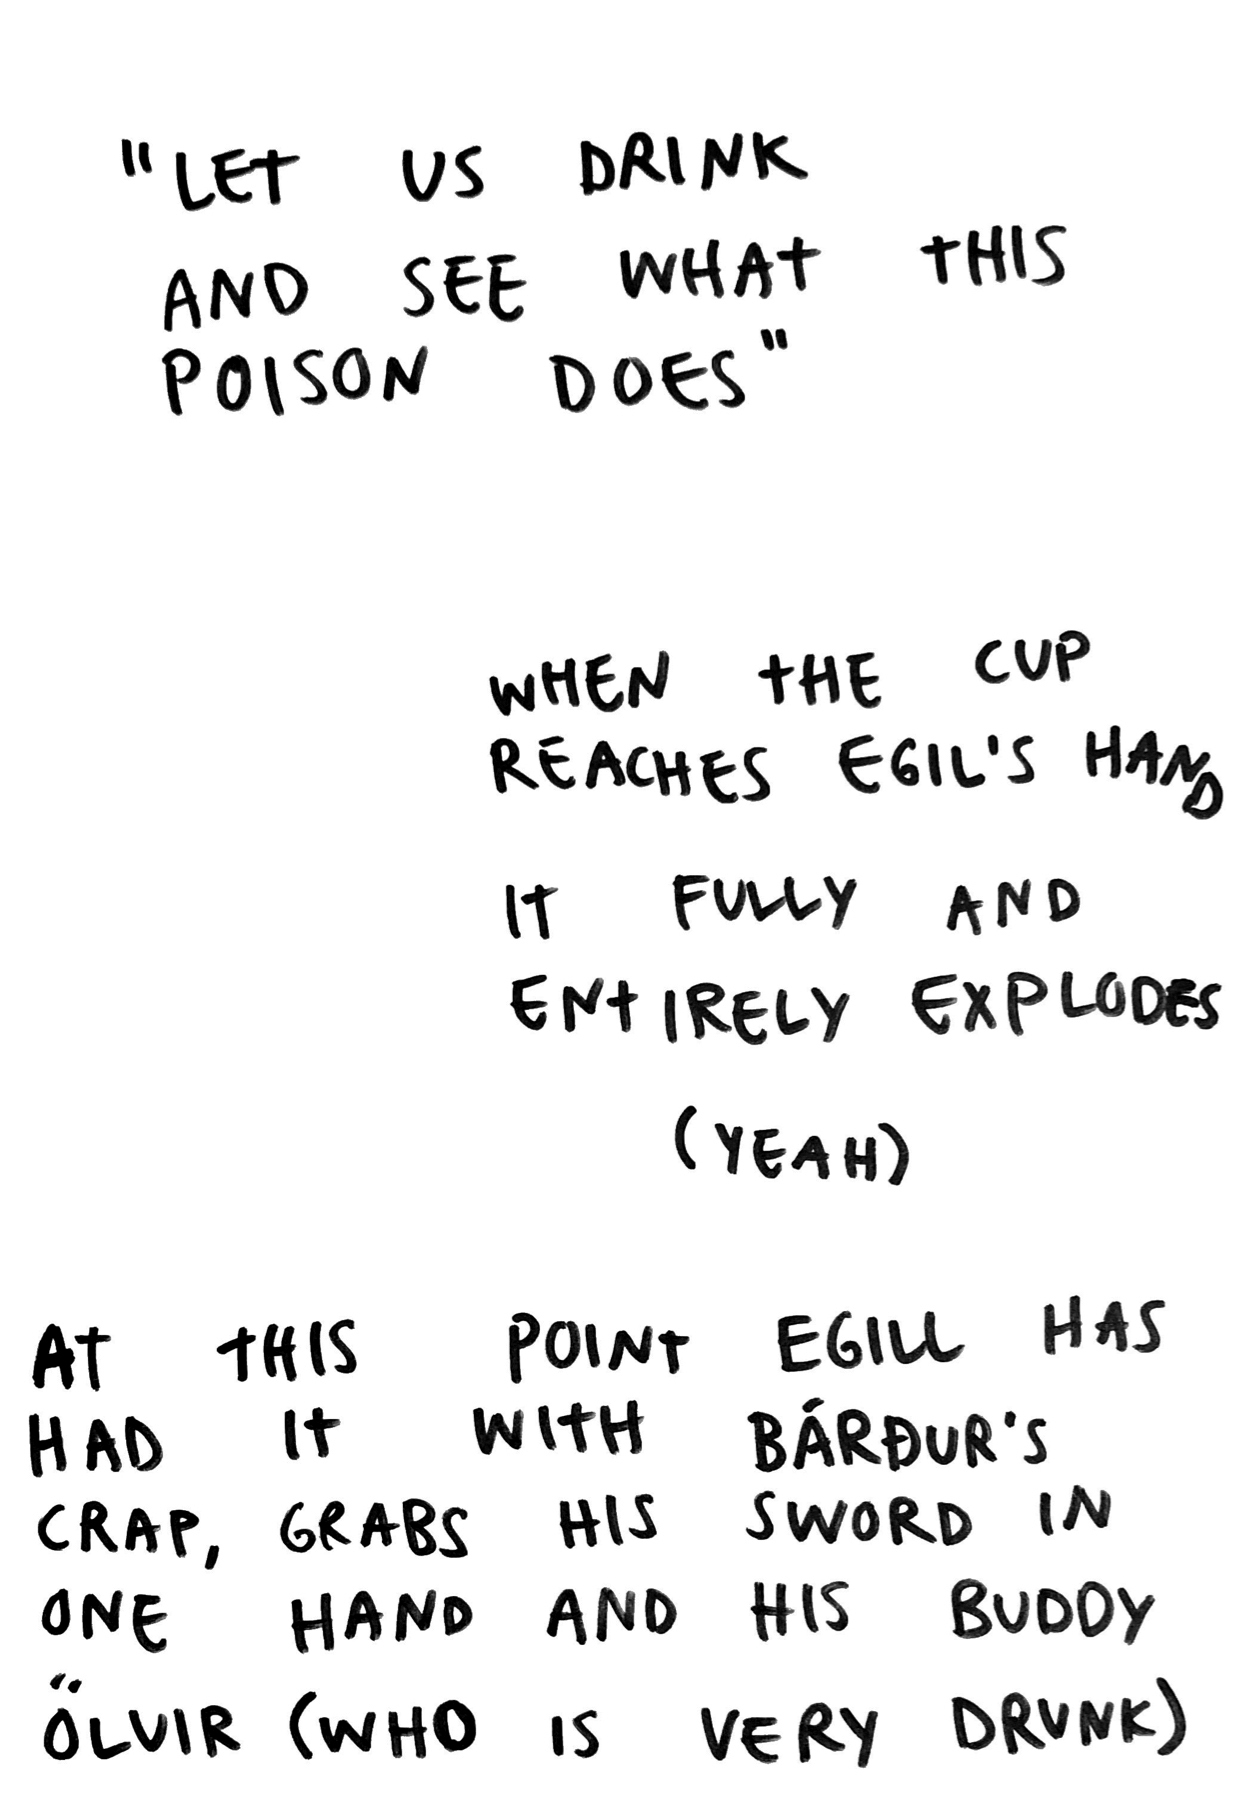 "LET US DRINK
AND SEE WHAT THIS
POISON DOES"
WHEN THE CUP
REACHES EGIL'S HAND
IT FULLY AND
ENTIRELY EXPLODES
(YEAH)
AT THIS POINT EGILL HAS
HAD IT WITH BÁRÐUR'S
CRAP, GRABS HIS SWORD IN
ONE HAND AND HIS BUDDY
ÖLVIR (WHO IS VERY DRUNK)